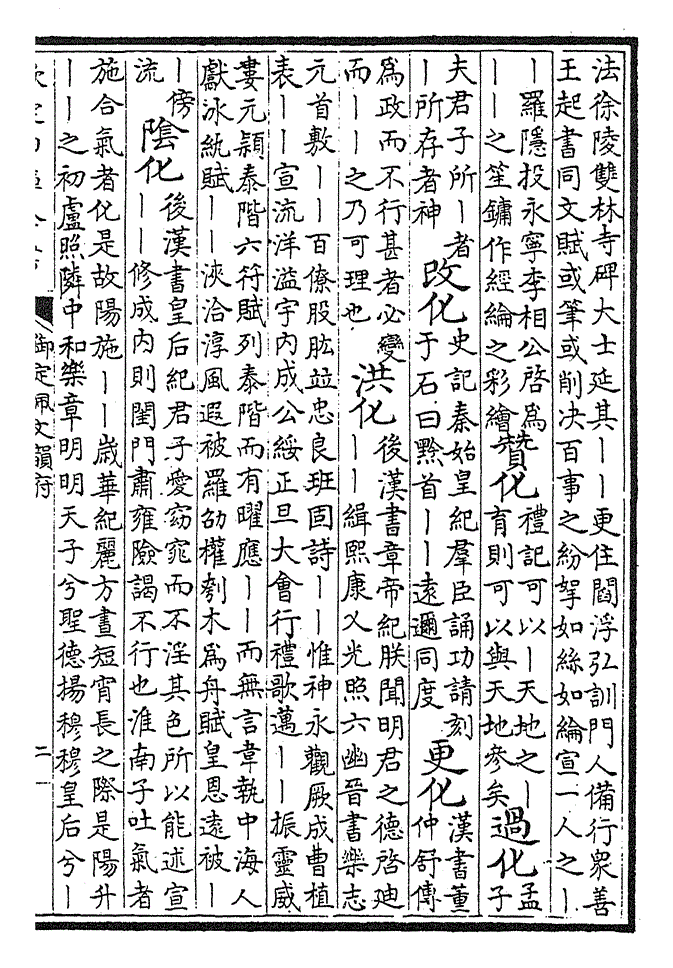 法徐陵雙林寺碑大士延其——更住閻浮弘訓門人備行衆善
王起書同文賦或筆或削決百事之紛挐如絲如綸宣一人之—
—羅隱投永寧李相公啓爲
——之笙鏞作經綸之彩繪
贊化
禮記可以—天地之—
育則可以與天地參矣
過化
孟
子
夫君子所—者
—所存者神
改化
史記秦始皇紀羣臣誦功請刻
于石曰黔首——遠邇同度
更化
漢書董
仲舒傳
爲政而不行甚者必變
而——之乃可理也
洪化
後漢書章帝紀朕聞明君之德啓迪
——緝熙康乂光照六幽晉書樂志
元首敷——百僚股肱竝忠良班固詩——惟神永觀厥成曹植
表——宣流洋溢宇内成公綏正旦大會行禮歌邁——振靈威
婁元穎泰階六符賦列泰階而有曜應——而無言韋執中海人
獻冰紈賦——浹洽淳風遐被羅劭權刳木爲舟賦皇恩遠被—
—傍
流
陰化
後漢書皇后紀君子愛窈窕而不淫其色所以能述宣
——修成内則閨門肅雍險謁不行也淮南子吐氣者
施合氣者化是故陽施——歲華紀麗方晝短宵長之際是陽升
——之初盧照隣中和樂章明明天子兮聖德揚穆穆皇后兮—
御定佩文韻府